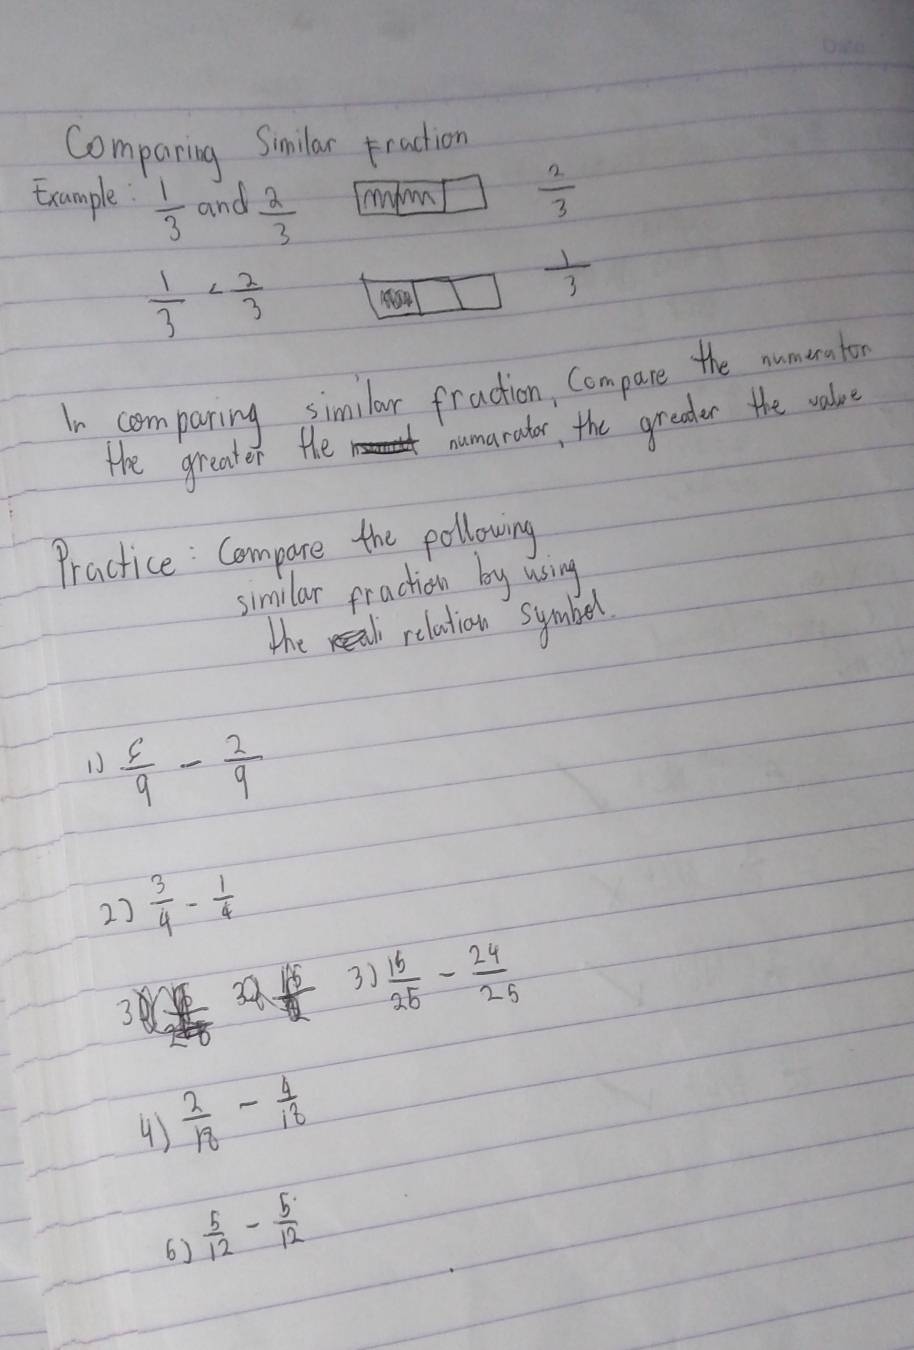 Date
Comparing Similar Fraction
Example: 1/3 and 2/3 2/3
1/3 < 2/3 1/3
In comparing similar fraction, Compare the numerator
the greater the numarator, the greater the value
Practice: Compare the following
similar fraction by using
the relation symbol.
1) /9 - 2/9
2) 3/4 - 1/4
3) 15/25 - 24/25
4) 2/18 - 4/18
5) 5/12 - 5/12